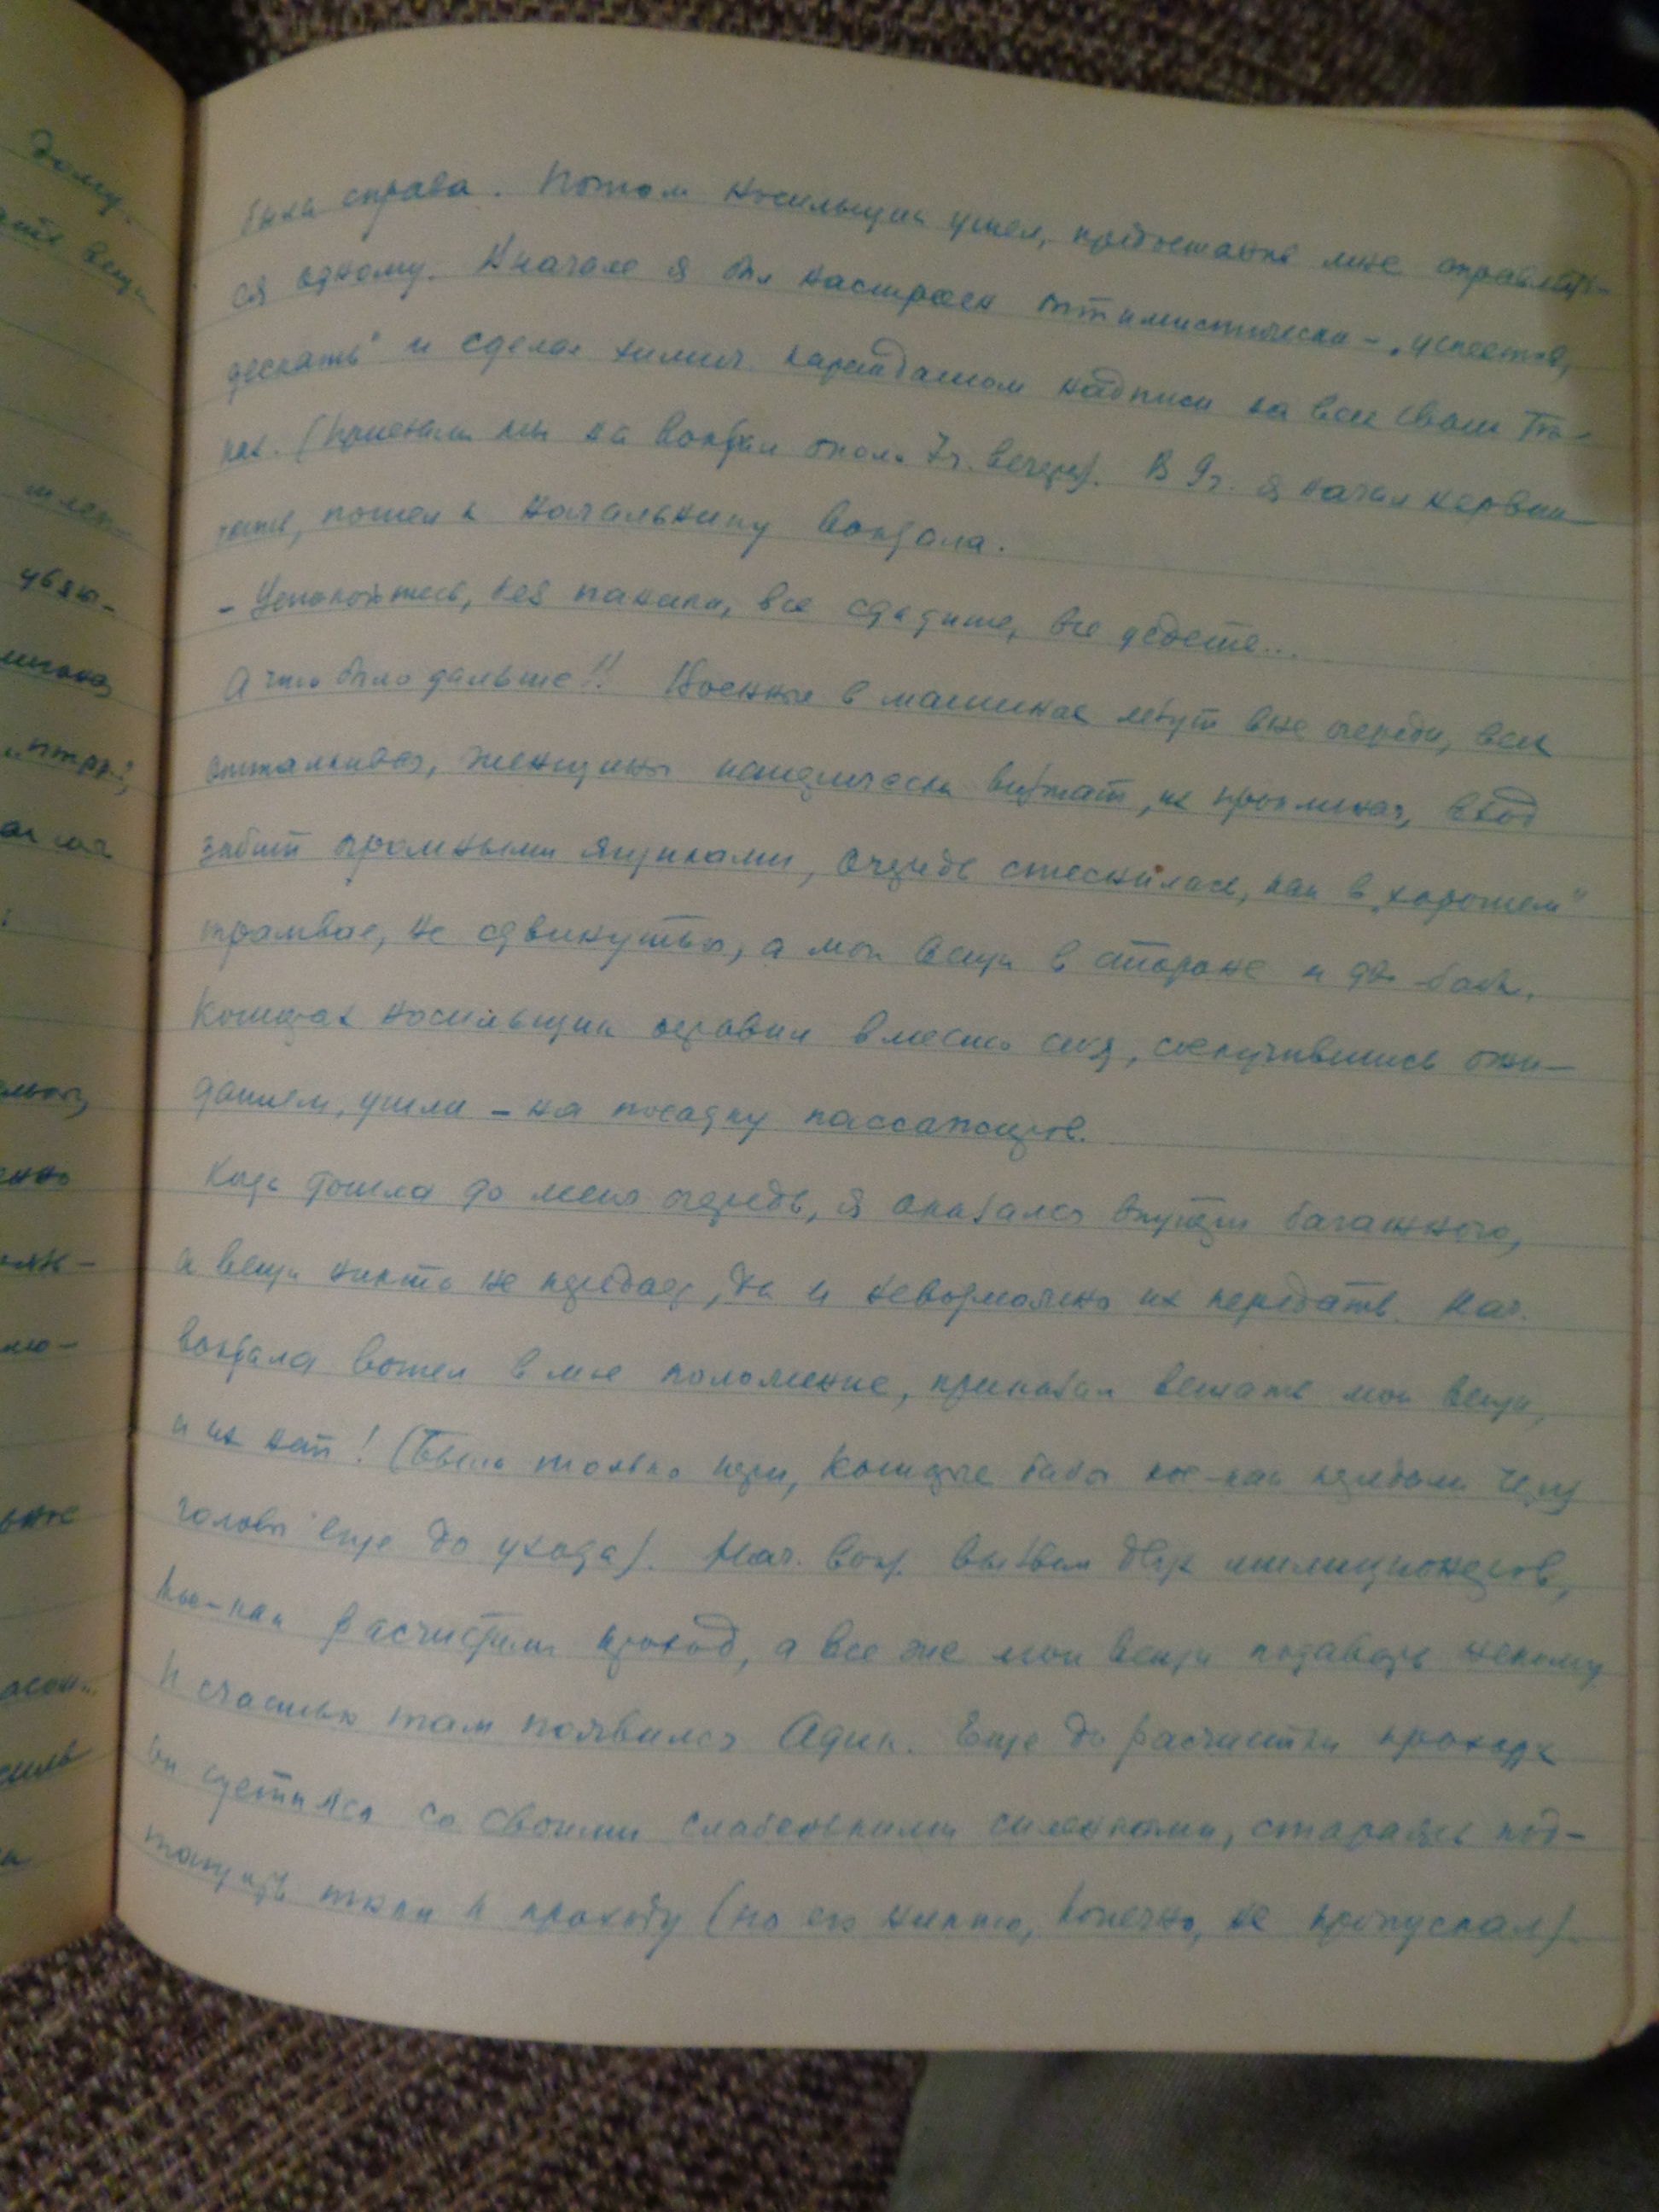 была справа. Потом носильщик ушел, предоставив мне справлять-
ся одному. Вначале я был настроен оптимистически - „успеется,
дескать" и сделал химич. карандашом надписи на всех своих тю-
ках. (Приехали мы на вокзал около 7 ч. вечера). В 9 ч. я начал нервни-
чать, пошел к начальнику вокзала.
- Успокойтесь, без паники, все сдадите, все уедете...
А что было дальше!! Военные в машинах лезут вне очереди, всех
отталкивая, женщины истерически визжат, их проклиная, вход
забит огромными ящиками, очередь стеснилась, как в „хорошем"
трамвае, не сдвинуться, а мои вещи в стороне и две бабы,
которых носильщик оставил вместо себя, соскучившись ожи-
данием, ушли - на посадку пассажиров.
Когда дошла до меня очередь, я оказался внутри багажного,
а вещи никто не передает, да и невозможно их передать. Нач.
вокзала вошел в мое положение, приказал вешать мои вещи,
и их нет! (Были только, которые бабы кое-как передали через
головы еще до ухода). Нач. вокз. вызвал двух милиционеров,
кое-как расчистили проход, а все же мои вещи подавать некому
К счастью там появился Адик. Еще до расчистки прохода
он суетился со своими слабенькими силенками, стараясь под-
тащить тюки к проходу (но его никто, конечно, не пропускал)
дому.
вещи
увяз-